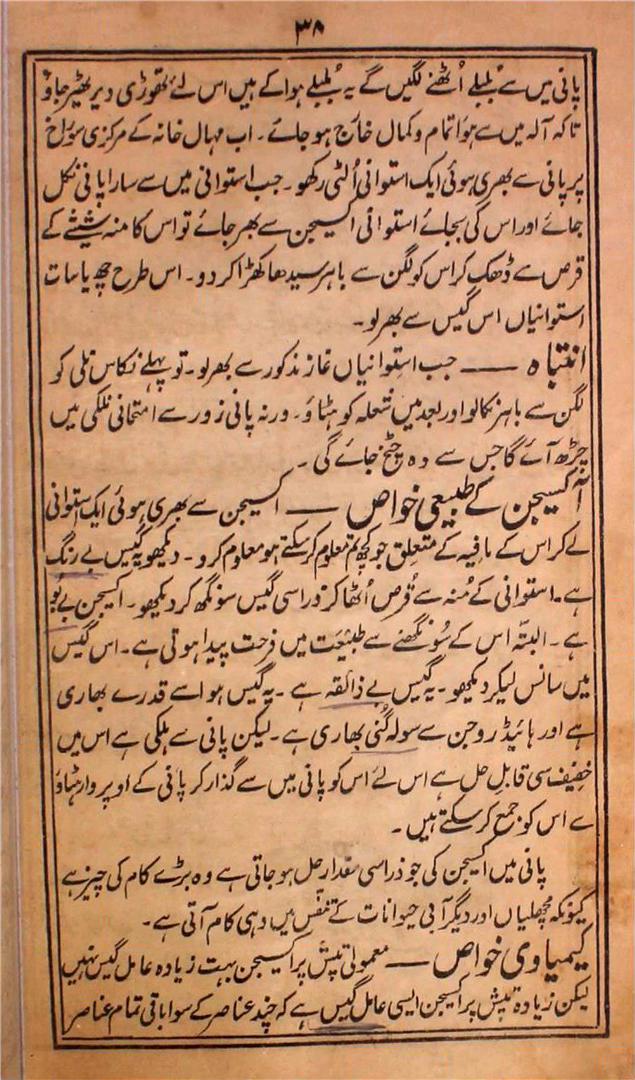 ۳۸
پانی میں سے بُلبلے اُٹھنے لگیں گے یہ بُلبلے ہوا کے ہیں اس لئے تھوڑی دیر ٹھیر جاؤ
تاکہ آلہ میں سے ہوا تمام و کمال خارج ہو جائے۔ اب مہال خانہ کے مرکزی سوراخ
پر پانی سے بھری ہوئی ایک استوانی اُلٹی رکھو۔ جب استوانی میں سے سارا پانی نکل
جائے اور اس کی بجائے استوانی آکسیجن سے بھر جائے تو اس کا منہ شیشے کے
قرص سے ڈھک کر اس کو لگن سے باہر سیدھا کھڑا کر دو۔ اس طرح چھ یا سات
استوانیاں اس گیس سے بھر لو۔
انتباہ —— جب استوانیاں غاز مذکور سے بھر لو۔ تو پہلے نکاس نلی کو
لگن سے باہر نکالو اور بعد میں شعلہ کو ہٹاؤ۔ ورنہ پانی زور سے امتحانی نلکی میں
چڑھ آئے گا جس سے وہ چٹخ جائے گی۔
آکسیجن کے طبیعی خواص —— آکسیجن سے بھری ہوئی ایک استوانی
لے کر اس کے مافیہ کے متعلق جو کچھ تم معلوم کر سکتے ہو معلوم کرو۔ دیکھو یہ گیس بے رنگ
ہے۔ استوانی کے مُنہ سے قُرص اُٹھا کر ذرا سی گیس سونگھ کر دیکھو۔ آکسیجن بے بُو
ہے۔ البتہ اس کے سُونگھنے سے طبیعت میں فرحت پیدا ہوتی ہے۔ اس گیس
میں سانس لیکر دیکھو۔ یہ گیس بے ذائقہ ہے۔ یہ گیس ہوا سے قدرے بھاری
ہے اور ہائیڈروجن سے سولہ گُنی بھاری ہے۔ لیکن پانی سے ہلکی ہے اس میں
خفیف سی قابلِ حل ہے اس لئے اس کو پانی میں سے گذار کر پانی کے اوپروار ہٹاؤ
سے اس کو جمع کر سکتے ہیں۔
پانی میں آکسیجن کی جو ذرا سی مقدار حل ہو جاتی ہے وہ بڑے کام کی چیز ہے
کیونکہ مچھلیاں اور دیگر آبی حیوانات کے تنفّس میں وہی کام آتی ہے۔
کیمیاوی خواص —— معمولی تپش پر آکسیجن بہت زیادہ عامل گیس نہیں
لیکن زیادہ تپش پر آکسیجن ایسی عامل گیس ہے کہ چند عناصر کے سوا باقی تمام عناصر